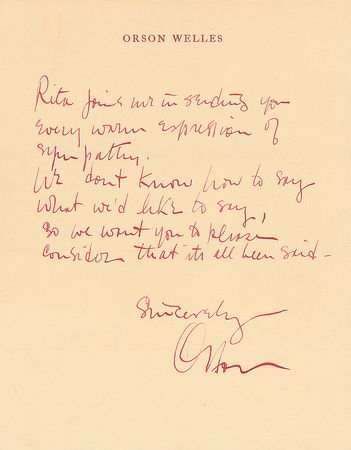 ORSON WELLES
Rita joins me in sending you
every warm expression of
sympathy.
We don't know how to say
what we'd like to say,
so we want you to please
consider that its all been said -
Sincerely
Orson